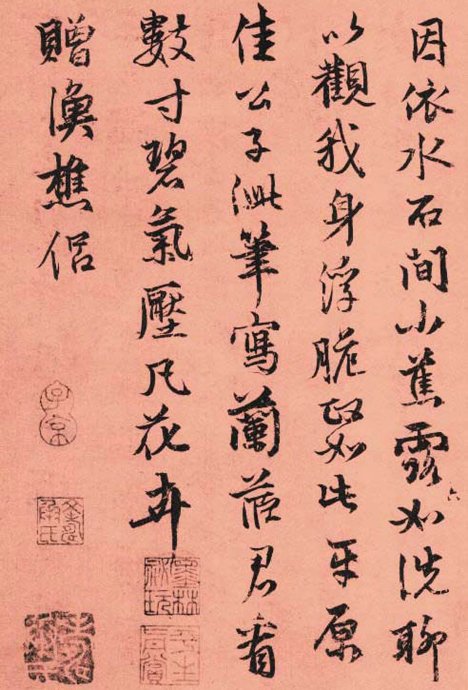 因依水石間小蕉露如洗聊
以觀我身浮脆政如此平原
佳公子泚筆寫蘭茝君看
數寸碧氣壓凡花卉
贈漁樵侶
子京
墨林秘玩